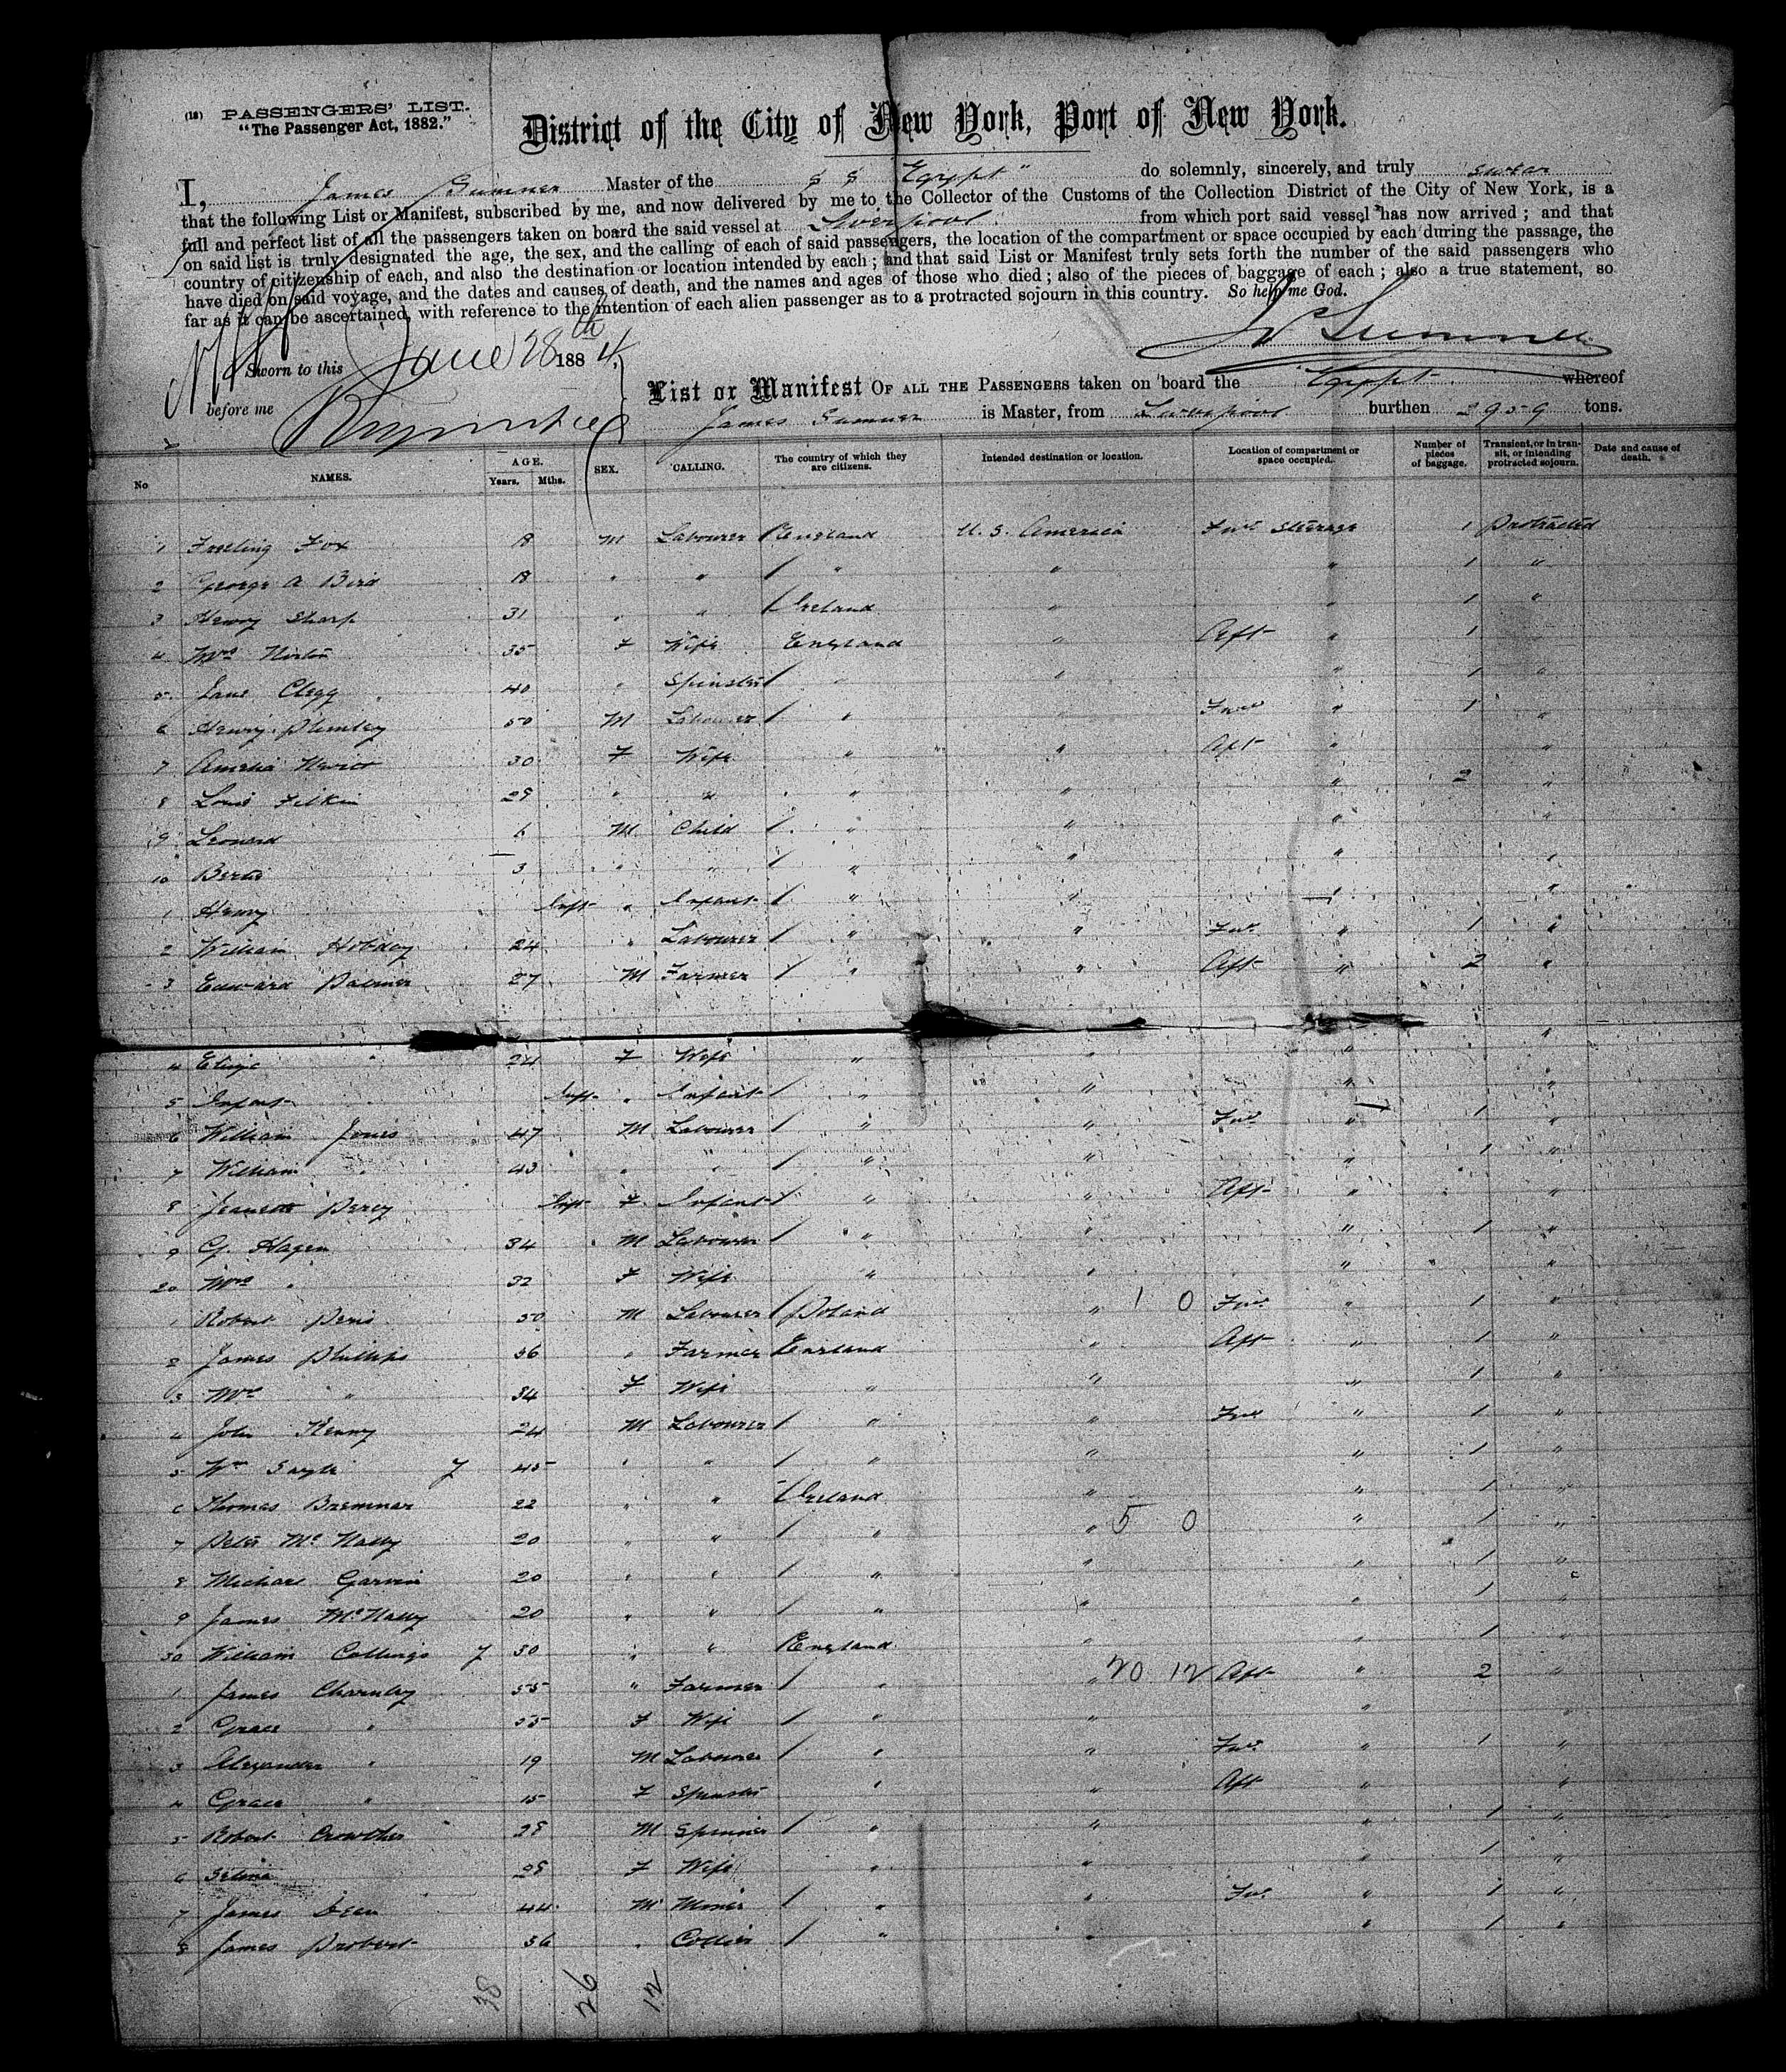 (18) PASSENGERS' LIST.
"The Passenger Act, 1882."
District of the City of New York, Port of New York.
I, James Sumner Master of the S S "Egypt" do solemnly, sincerely, and truly swear
that the following List or Manifest, subscribed by me, and now delivered by me to the Collector of the Customs of the Collection District of the City of New York, is a
full and perfect list of all the passengers taken on board the said vessel at Liverpool from which port said vessel has now arrived; and that
on said list is truly designated the age, the sex, and the calling of each of said passengers, the location of the compartment or space occupied by each during the passage, the
country of citizenship of each, and also the destination or location intended by each; and that said List or Manifest truly sets forth the number of the said passengers who
have died on said voyage, and the dates and causes of death, and the names and ages of those who died; also of the pieces of baggage of each; also a true statement, so
far as it can be ascertained, with reference to the intention of each alien passenger as to a protracted sojourn in this country. So help me God.
J Sumner
Sworn to this June 28th 1884
before me
List or Manifest OF ALL THE PASSENGERS taken on board the Egypt whereof
James Sumner is Master, from Liverpool burthen 2959 tons.
No NAMES. AGE. Years. Mths. SEX. CALLING. The country of which they are citizens. Intended destination or location. Location of compartment or space occupied. Number of pieces of baggage. Transient, or in transit, or intending protracted sojourn. Date and cause of death.
1 Fox 18 M Labourer England U. S. America Fwd Steerage 1 Protracted
2 George A Bird 18 " " " " " 1 "
3 Henry Sharp 31 " " Ireland " " 1 "
4 Mrs 35 F Wife England " Aft " 1
5 Jane Clegg 40 " Spinster " " " 1 "
6 Henry Plumley 50 M Labourer " " Fwd " 1 "
7 Amelia 30 F Wife " " Aft " "
8 Filkin 29 " " " " " 2 "
9 Leonard 6 M Child " " " "
10 Bertie 3 " " " " " "
1 Henry Inft " Infant " " " "
2 William Hobday 24 " Labourer " " Fwd " 1 "
3 Edward Palmer 27 M Farmer " " Aft " 2 "
4 Eliza " 24 F Wife " " " "
5 Infant Inft " Infant " " " "
6 William Jones 47 M Labourer " " Fwd " 1 "
7 William " 43 " " " " " 1 "
8 Percy Inft F Infant " " Aft " "
9 G. Hagen 34 M Labourer " " " 1 "
20 Mrs " 32 F Wife " " " "
1 Robert 50 M Labourer Poland " 1 0 Fwd " 1 "
2 James Phillips 36 " Farmer England " Aft " 1 "
3 Mrs " 34 F Wife " " " 1 "
4 John Kenny 24 M Labourer " " Fwd " 1 "
5 Wm Sayle 7 45 " " " " " 1 "
6 Thomas Bremner 22 " " Ireland " " 1 "
7 Peter McNally 20 " " " " 5 0 " 1 "
8 Michael Garvin 20 " " " " " 1 "
9 James McNally 20 " " " " " 1 "
30 William Collings 7 30 " " England " " 1 "
1 James Charnley 55 " Farmer " " 20 12 Aft " 2 "
2 Grace " 55 F Wife " " " "
3 Alexander " 19 M Labourer " " Fwd " 1 "
4 Grace " 15 F Spinster " " Aft " "
5 Robert Crowther 28 M Spinner " " " 1 "
6 Selina 28 F Wife " " " 1 "
7 James Deen 44 M Miner " " Fwd " 1 "
8 James Probert 36 " Collier " " " 1 "
38 26 12